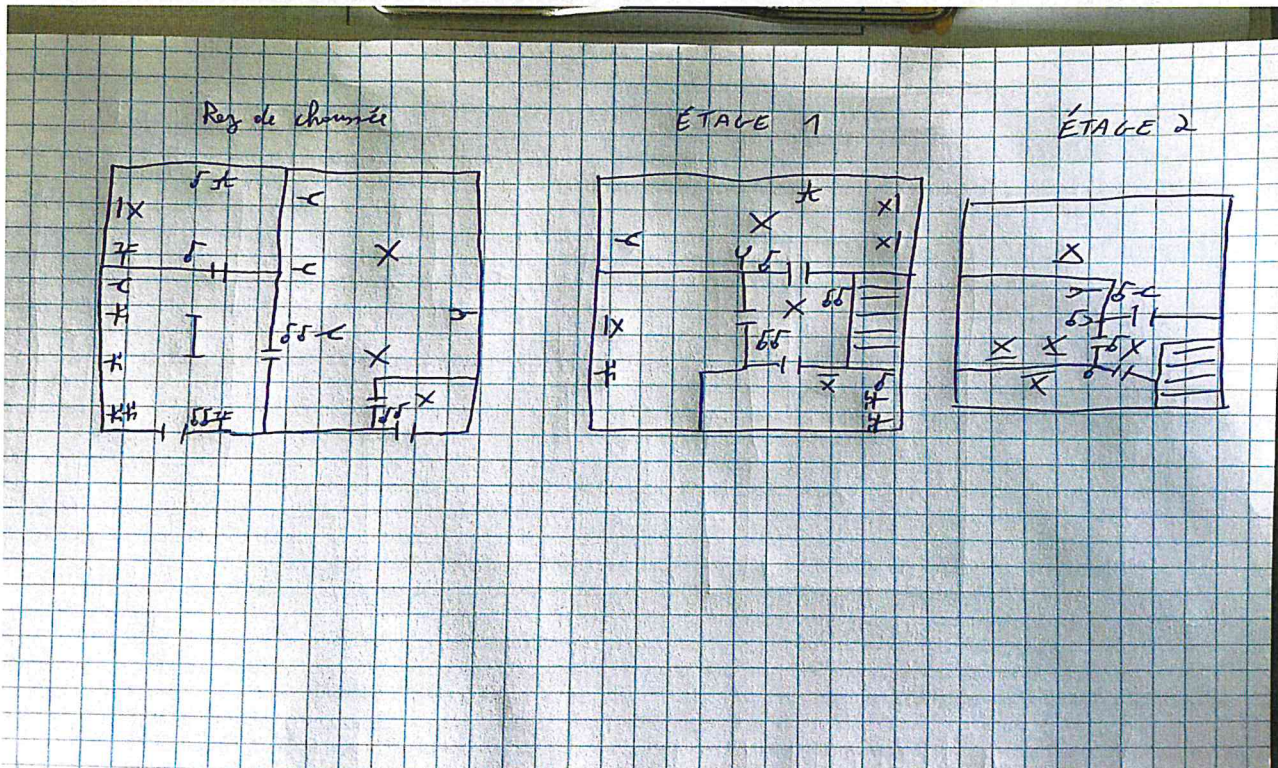 Rez de chaussée
ÉTAGE 1
ÉTAGE 2